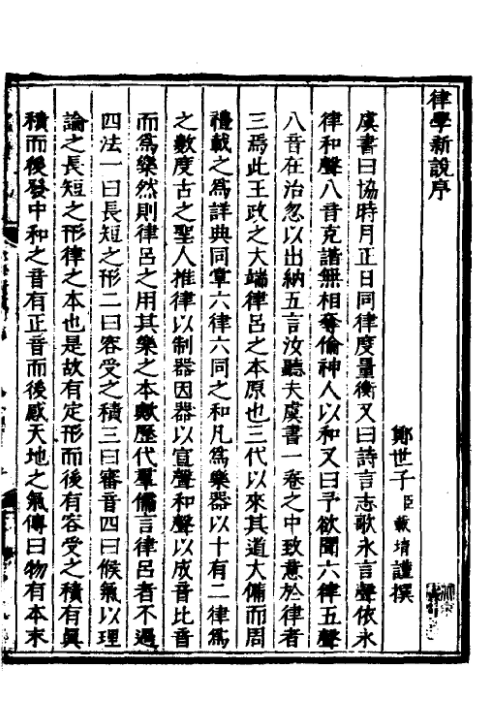 律學新說序
鄭世子臣載堉謹撰
虞書曰協時月正日同律度量衡又曰詩言志歌永言聲依永
律和聲八音克諧無相奪倫神人以和又曰予欲聞六律五聲
八音在治忽以出納五言汝聽夫虞書一卷之中致意於律者
三焉此王政之大端律呂之本原也三代以來其道大備而周
禮載之爲詳典同掌六律六同之和凡爲樂器以十有二律爲
之數度古之聖人推律以制器因器以宣聲和聲以成音比音
而爲樂然則律呂之用其樂之本歟歷代羣儒言律呂者不過
四法一曰長短之形二曰容受之積三曰審音四曰候氣以理
論之長短之形律之本也是故有定形而後有容受之積有眞
積而後發中和之音有正音而後感天地之氣傳曰物有本末